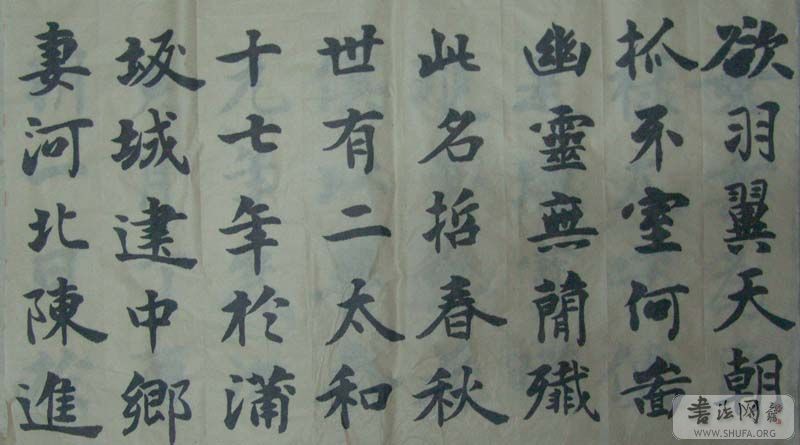 欲羽翼天朝
抓不室何啚
幽靈無簡殲
此名哲春秋
世有二太和
十七年於蒲
坂城建中鄉
妻河北陳進
書法网
WWW.SHUFA.ORG